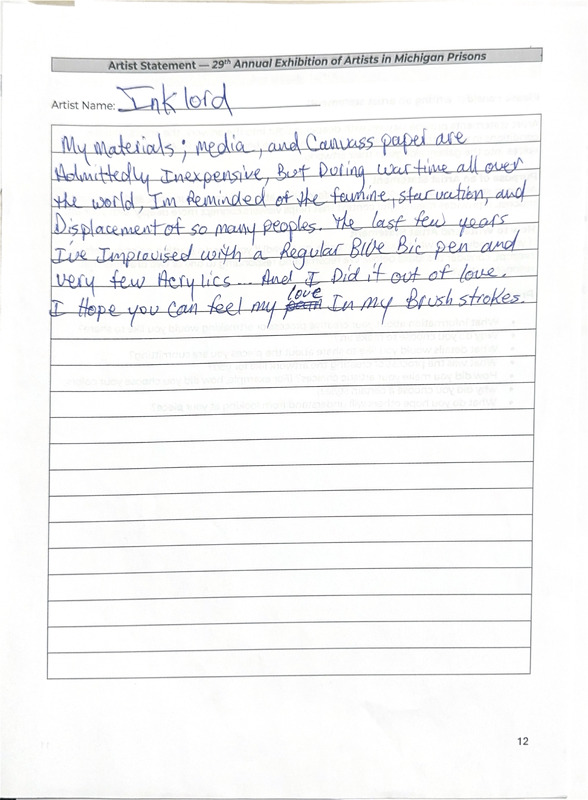 Artist Statement — 29th Annual Exhibition of Artists in Michigan Prisons
Artist Name: Inklord
My Materials; media, and Canvass paper are
Admittedly Inexpensive, But During war time all over
the world, Im Reminded of the femine, starvation, and
Displacement of so many peoples. The last few years
I've Improvised with a Regular Blue Bic pen and
very few Acrylics... And I Did it out of love.
I Hope you can feel my love In my Brush strokes.
12